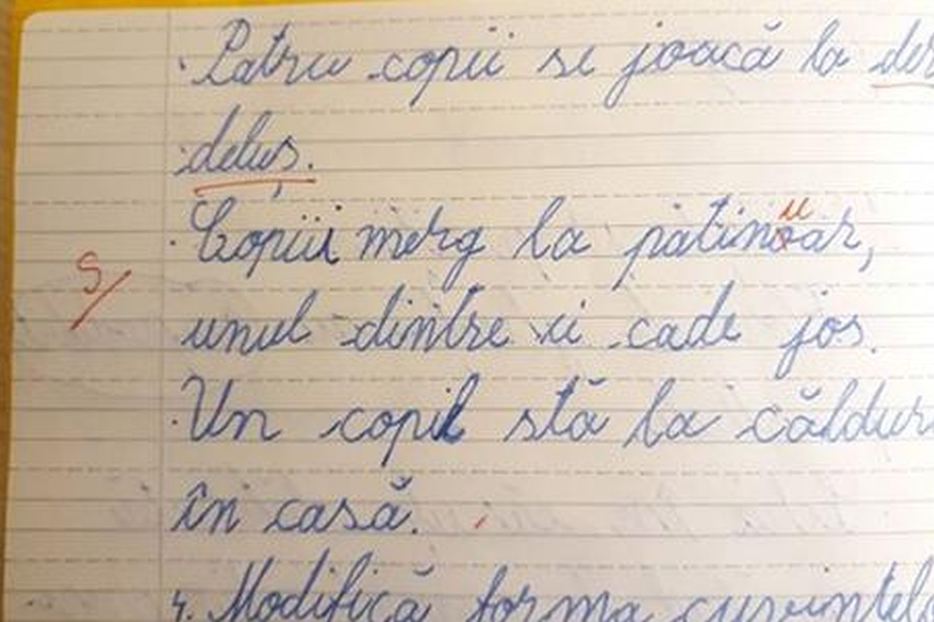 Patru copii se joacă la der
deluș.
Copiii merg la patinoar,
u
S/
unul dintre ei cade jos.
Un copil stă la căldur
în casă.
4. Modifică forma cuvintelo